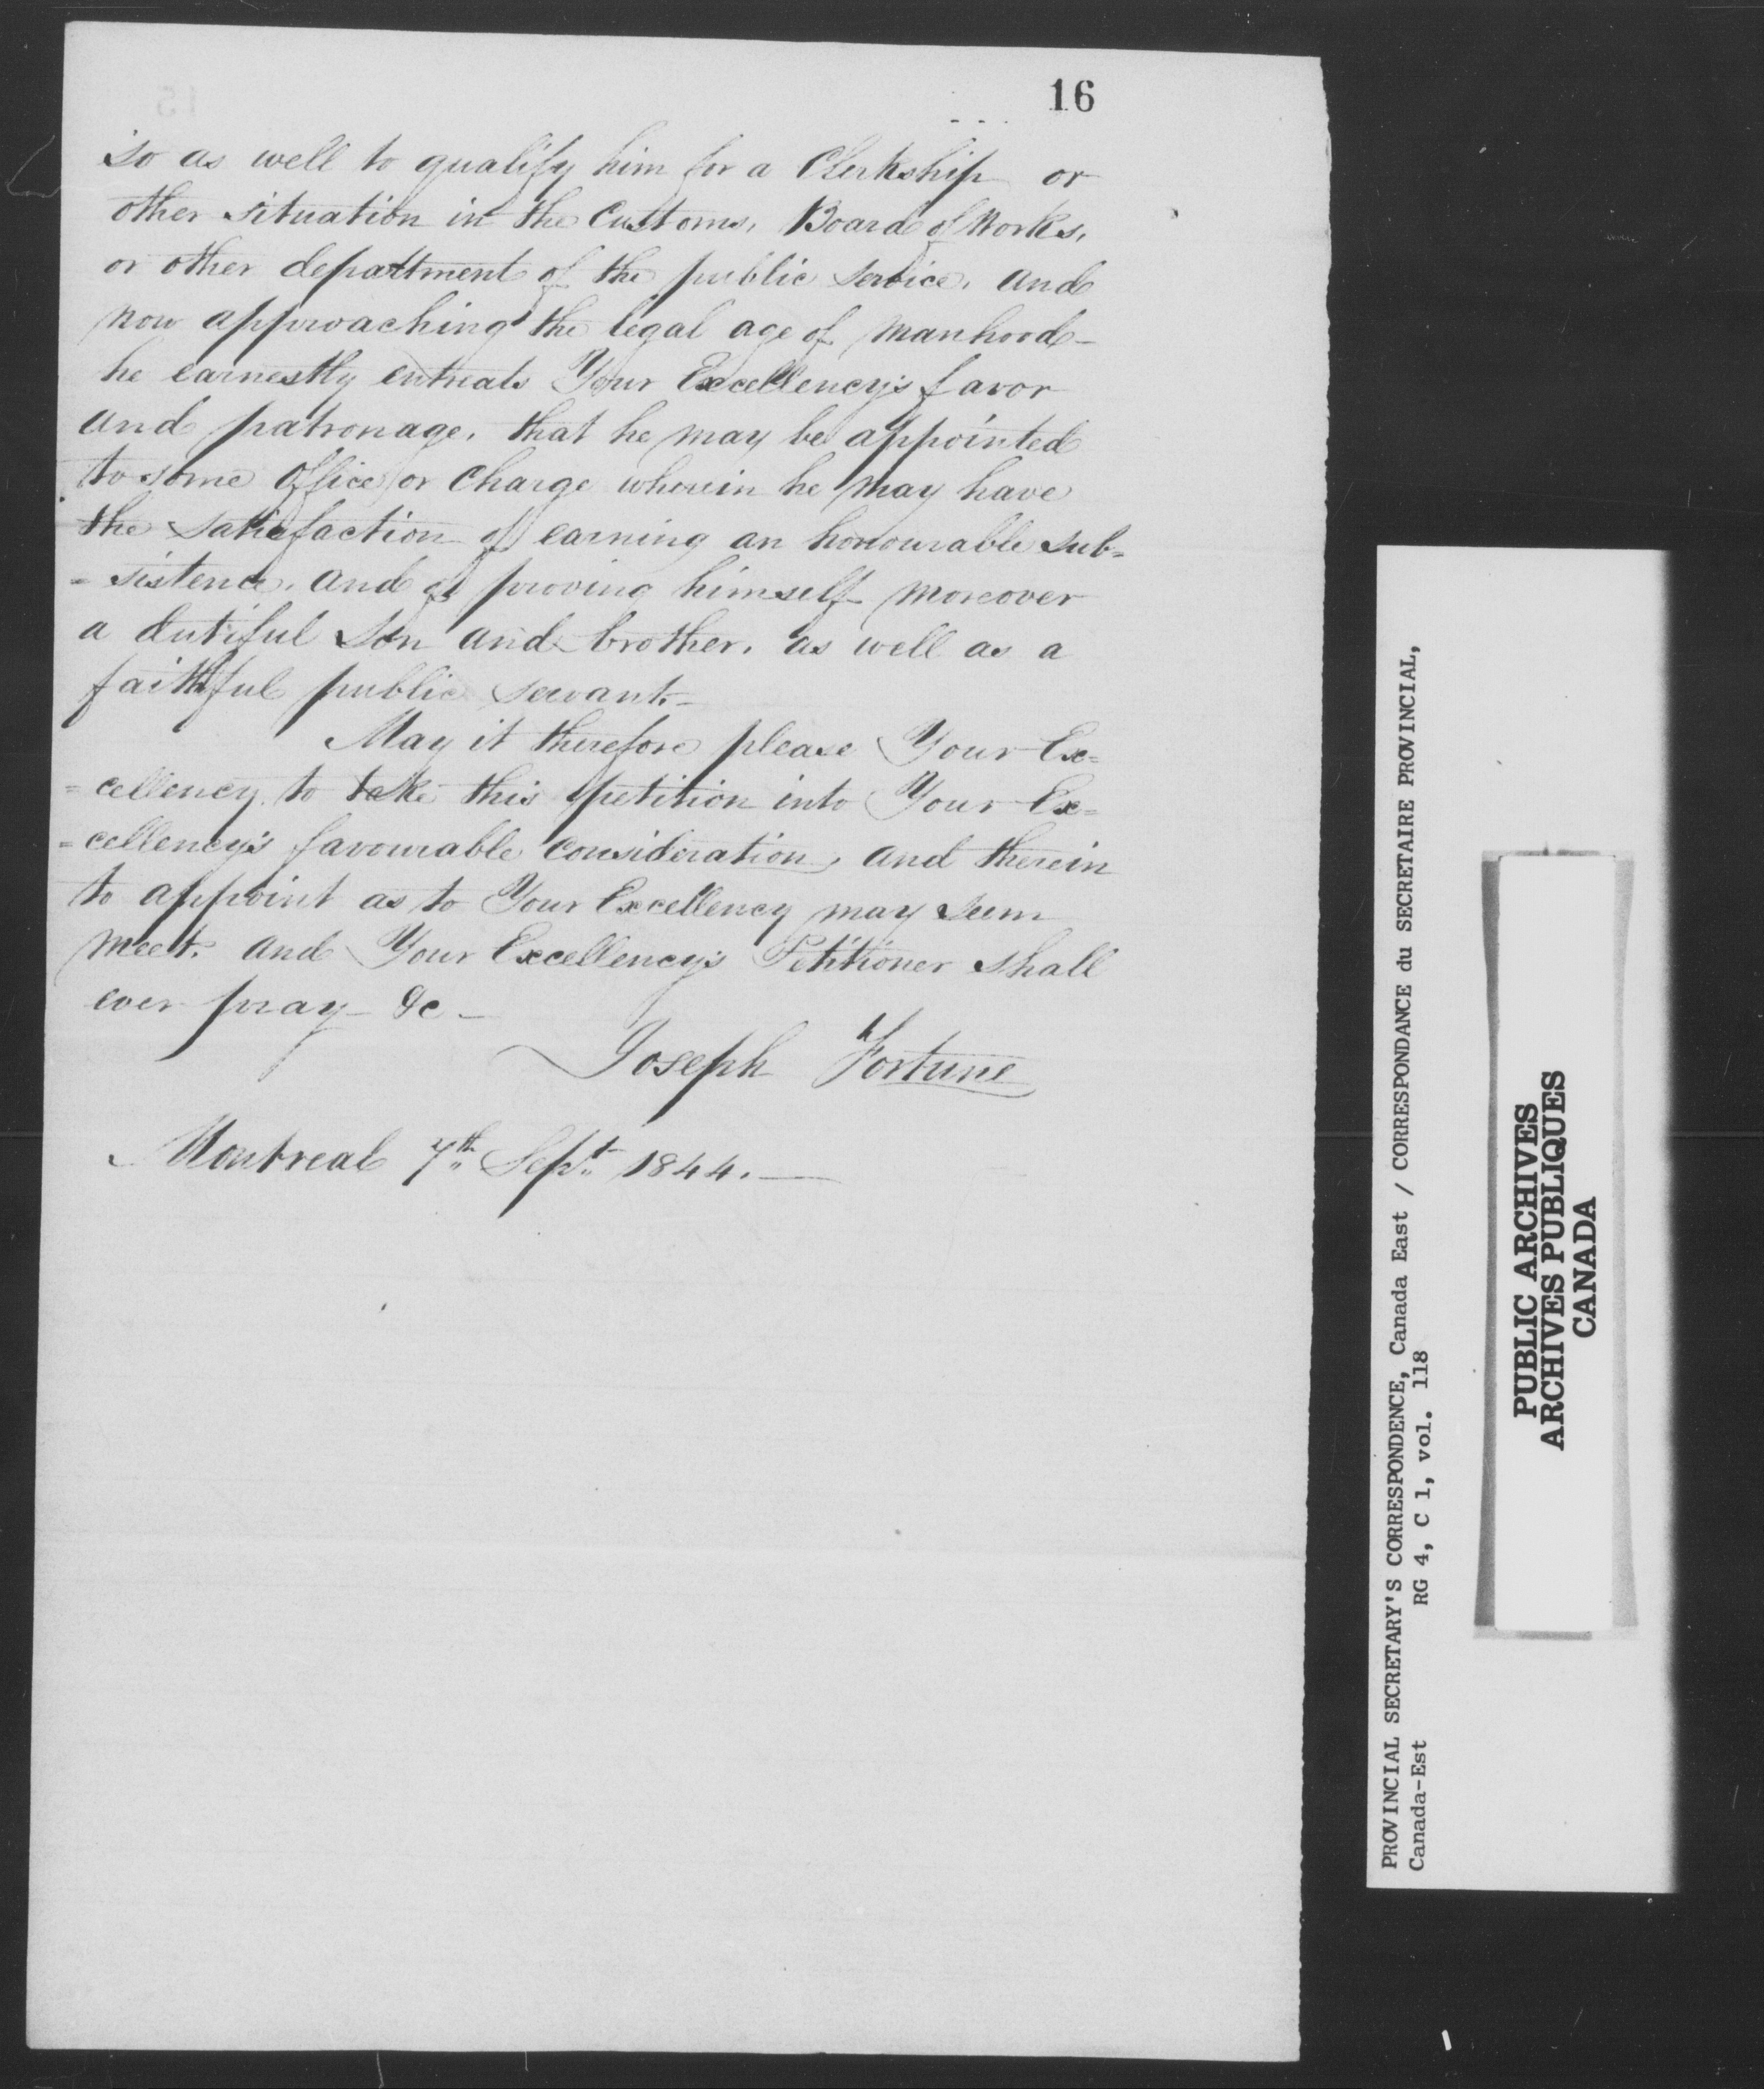 16
so as well to qualify him for a Clerkship or
other situation in the Customs, Board of Works,
or other department of the public service, and
now approaching the legal age of manhood -
he earnestly entreats Your Excellency's favor
and patronage, that he may be appointed
to some Office or Charge wherein he may have
the satisfaction of earning an honourable sub=
= sistence, and of proving himself moreover
a dutiful Son and brother, as well as a
faithful public servant. -
May it therefore please Your Ex=
= cellency to take this petition into Your Ex=
= cellency's favourable consideration, and therein
to appoint as to Your Excellency may seem
meet. And Your Excellency's Petitioner shall
ever pray - &c -
Joseph Fortune
Montreal 7th Sept 1844. —
PROVINCIAL SECRETARY'S CORRESPONDENCE, Canada East / CORRESPONDANCE du SECRETAIRE PROVINCIAL,
Canada-Est RG 4, C 1, vol. 118
PUBLIC ARCHIVES
ARCHIVES PUBLIQUES
CANADA